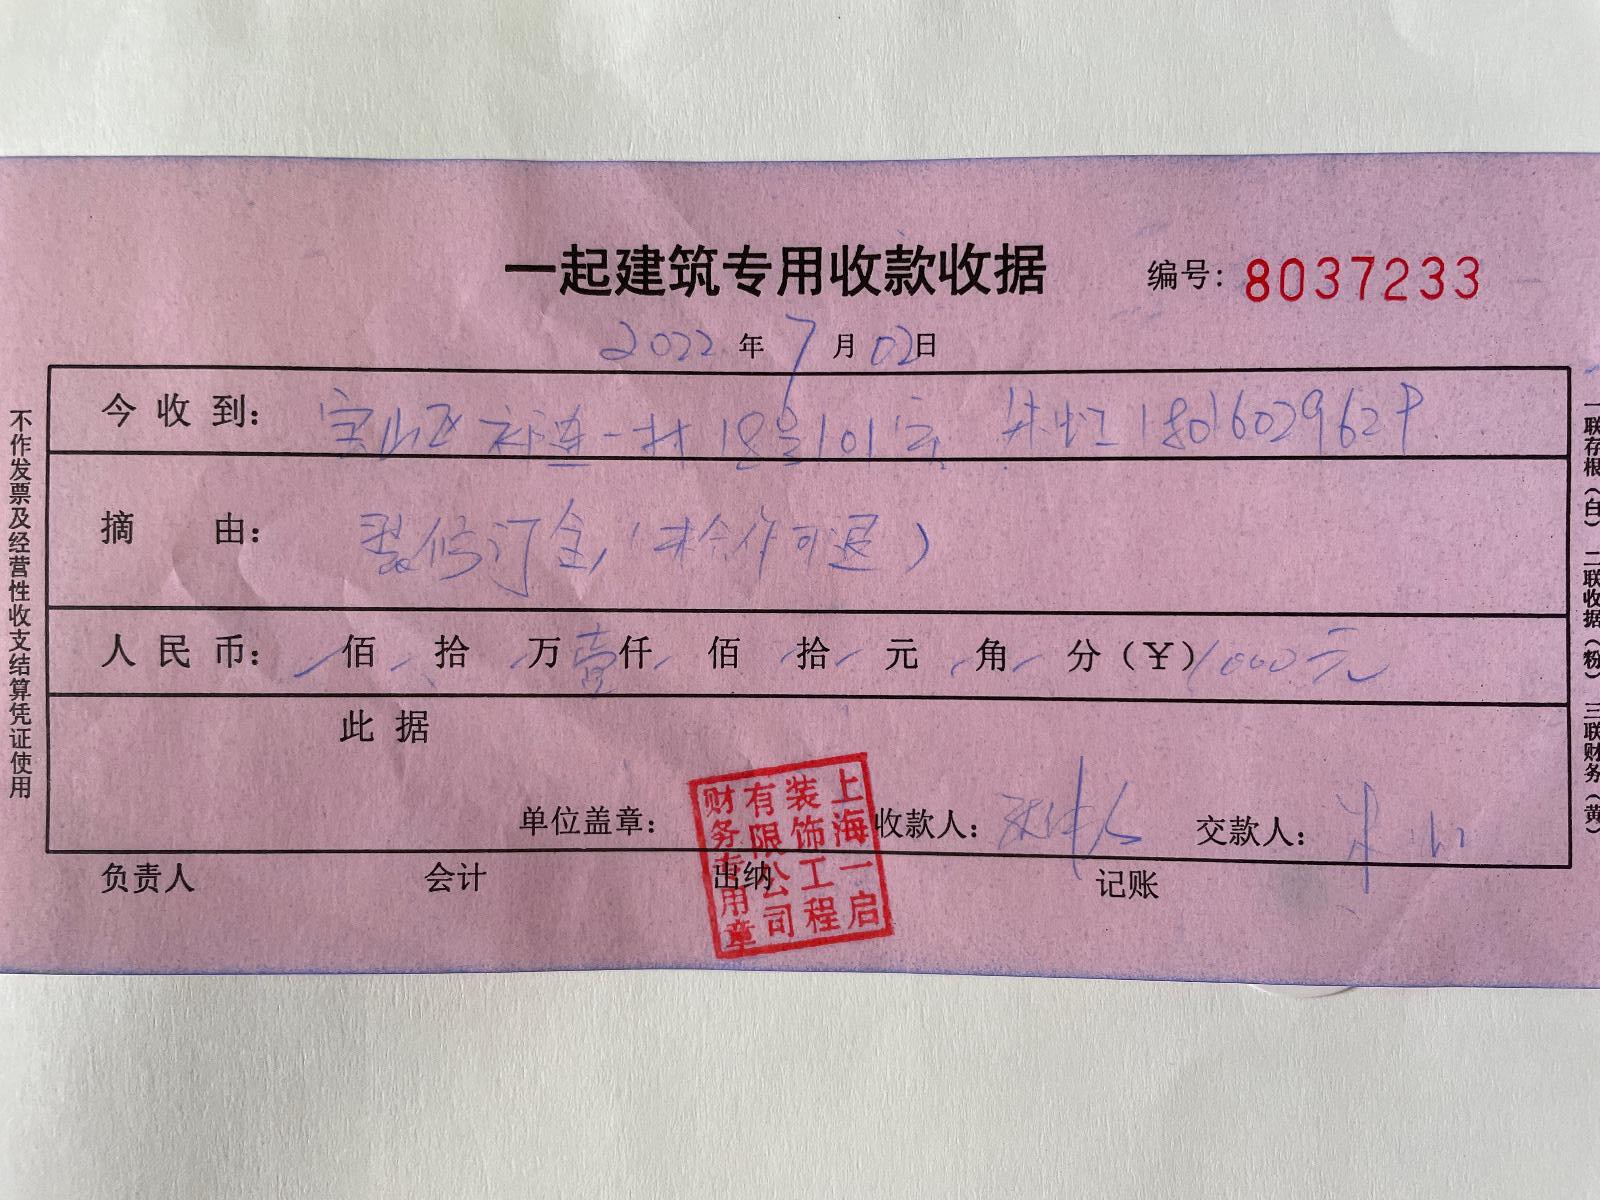 一起建筑专用收款收据
编号: 8037233
2022 年 7 月 02 日
今收到: 宝山区 一村 18号101室 朱虹
摘 由: 装修订金(未合作可退)
人民币: 佰 拾 万 壹 仟 佰 拾 元 角 分(¥)1000元
此据
单位盖章:
收款人:
交款人: 朱虹
负责人 会计 出纳 记账
上海一启
装饰工程
有限公司
财务专用章
不作发票及经营性收支结算凭证使用
一联存根(白) 二联收据(粉) 三联财务(黄)